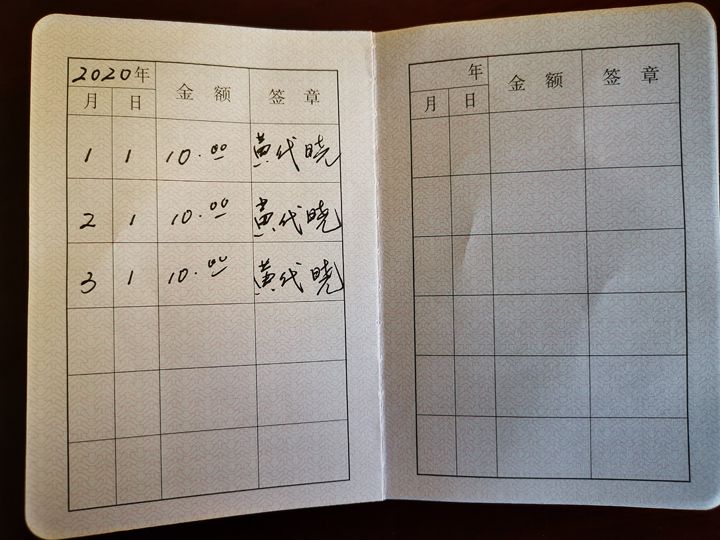 2020年 金 额 签 章
月 日
1 1 10.00 黄代晓
2 1 10.00 黄代晓
3 1 10.00 黄代晓
年 金 额 签 章
月 日